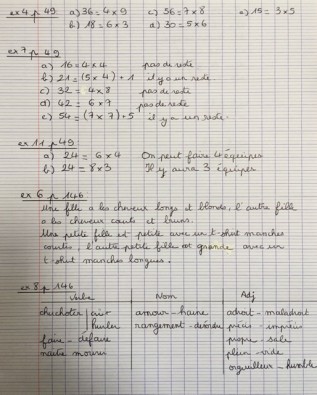 ex 4 p 49: a) 36 = 4 x 9 c) 56 = 7 x 8 e) 15 = 3 x 5
b) 18 = 6 x 3 d) 30 = 5 x 6
ex 7 p 49
a) 16 = 4 x 4 pas de reste
b) 21 = (5 x 4) + 1 il y a un reste
c) 32 = 4 x 8 pas de reste
d) 42 = 6 x 7 pas de reste
e) 54 = (7 x 7) + 5 il y a un reste
ex 11 p 49
a) 24 = 6 x 4 On peut faire 4 équipes
b) 24 = 8 x 3 Il y aura 3 équipes
ex 6 p 146
Une fille a les cheveux longs et blonds, l'autre fille
a les cheveux courts et bruns.
Une petite fille est petite avec un t-shirt manches
courtes, l'autre petite fille est grande avec un
t-shirt manches longues.
ex 8 p 146
Verbe Nom Adj
chuchoter amour - haine adroit - maladroit
hurler rangement - désordre précis - imprécis
faire - défaire propre - sale
naître mourir plein - vide
orgueilleux - humble